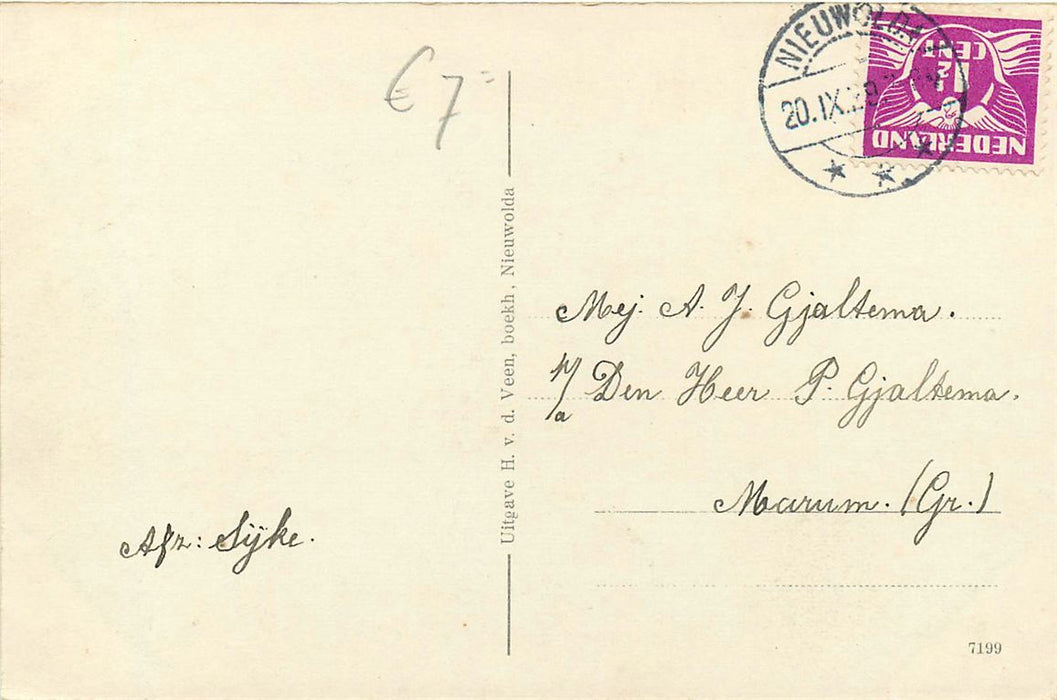 € 7=
Afz: Sijke.
Uitgave H. v. d. Veen, boekh, Nieuwolda
NIEUWOLDA
20.IX.29
CENT
1½
NEDERLAND
Mej. A. J. Gjaltema.
p/a Den Heer P. Gjaltema.
Marum. (Gr.)
7199